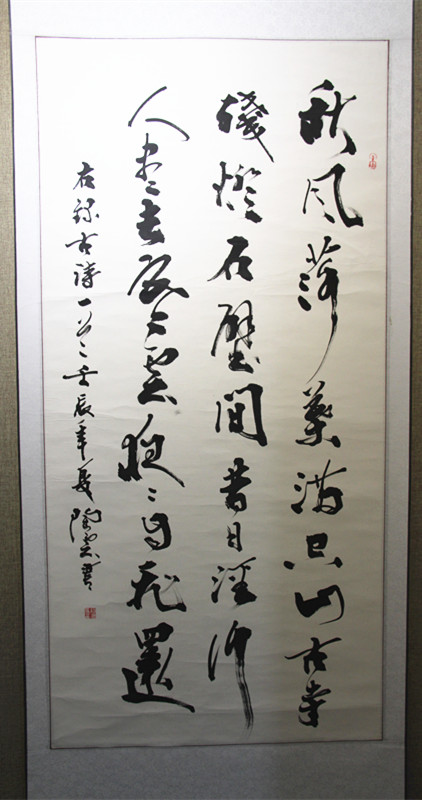 秋风落葉滿空山古寺
殘燈石壁間昔日經行
人尽去寒雲夜々自飛還
右録古詩一首壬辰年夏陶雲書